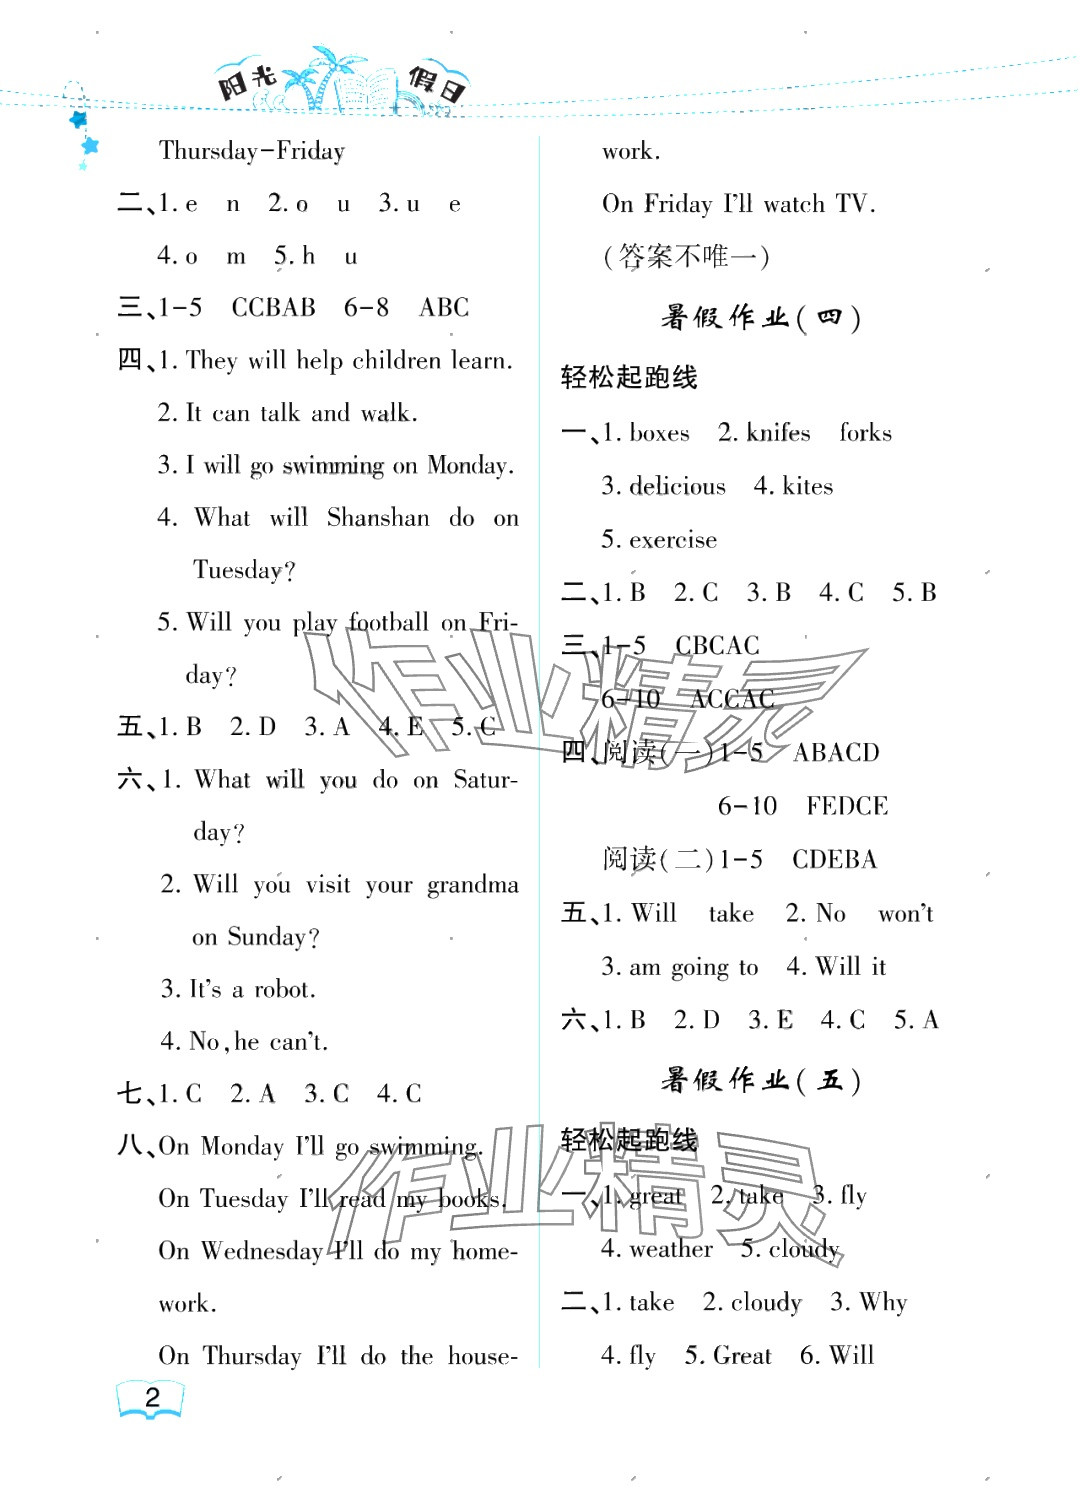 阳光假日
Thursday-Friday
二、1. e n 2. o u 3. u e
4. o m 5. h u
三、1-5 CCBAB 6-8 ABC
四、1. They will help children learn.
2. It can talk and walk.
3. I will go swimming on Monday.
4. What will Shanshan do on
Tuesday?
5. Will you play football on Fri-
day?
五、1. B 2. D 3. A 4. E 5. C
六、1. What will you do on Satur-
day?
2. Will you visit your grandma
on Sunday?
3. It's a robot.
4. No, he can't.
七、1. C 2. A 3. C 4. C
八、On Monday I'll go swimming.
On Tuesday I'll read my books.
On Wednesday I'll do my home-
work.
On Thursday I'll do the house-
work.
On Friday I'll watch TV.
(答案不唯一)
暑假作业(四)
轻松起跑线
一、1. boxes 2. knifes forks
3. delicious 4. kites
5. exercise
二、1. B 2. C 3. B 4. C 5. B
三、1-5 CBCAC
6-10 ACCAC
四、阅读(一)1-5 ABACD
6-10 FEDCE
阅读(二)1-5 CDEBA
五、1. Will take 2. No won't
3. am going to 4. Will it
六、1. B 2. D 3. E 4. C 5. A
暑假作业(五)
轻松起跑线
一、1. great 2. take 3. fly
4. weather 5. cloudy
二、1. take 2. cloudy 3. Why
4. fly 5. Great 6. Will
2
作业精灵
作业精灵